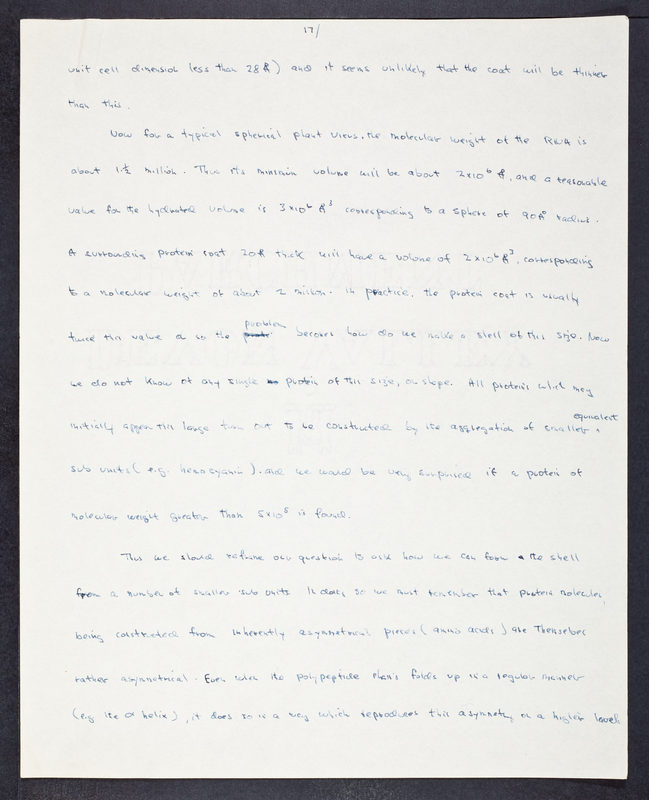 17/
unit cell dimension less than 28Å) and it seems unlikely that the coat will be thinner
than this.
Now for a typical spherical plant virus, the molecular weight of the RNA is
about 1½ million. Thus its minimum volume will be about 2x10⁶ Å, and a reasonable
value for the hydrated volume is 3x10⁶ Å³ corresponding to a sphere of 90Å radius.
A surrounding protein coat 20Å thick will have a volume of 2x10⁶ Å³, corresponding
to a molecular weight of about 2 million. In practice, the protein coat is usually
twice this value or so the problem becomes how do we make a shell of this size. Now
we do not know of any single protein of this size, or shape. All proteins which may
initially appear this large turn out to be constructed by the aggregation of smaller, equivalent
sub units (e.g. hemocyanin), and we would be very surprised if a protein of
molecular weight greater than 5x10⁵ is found.
Thus we should reframe our question to ask how we can form the shell
from a number of smaller sub units. In doing so we must remember that protein molecules,
being constructed from inherently asymmetrical pieces (amino acids) are themselves
rather asymmetrical. Even when the polypeptide chain folds up in a regular manner
(e.g. the α helix), it does so in a way which reproduces this asymmetry on a higher level